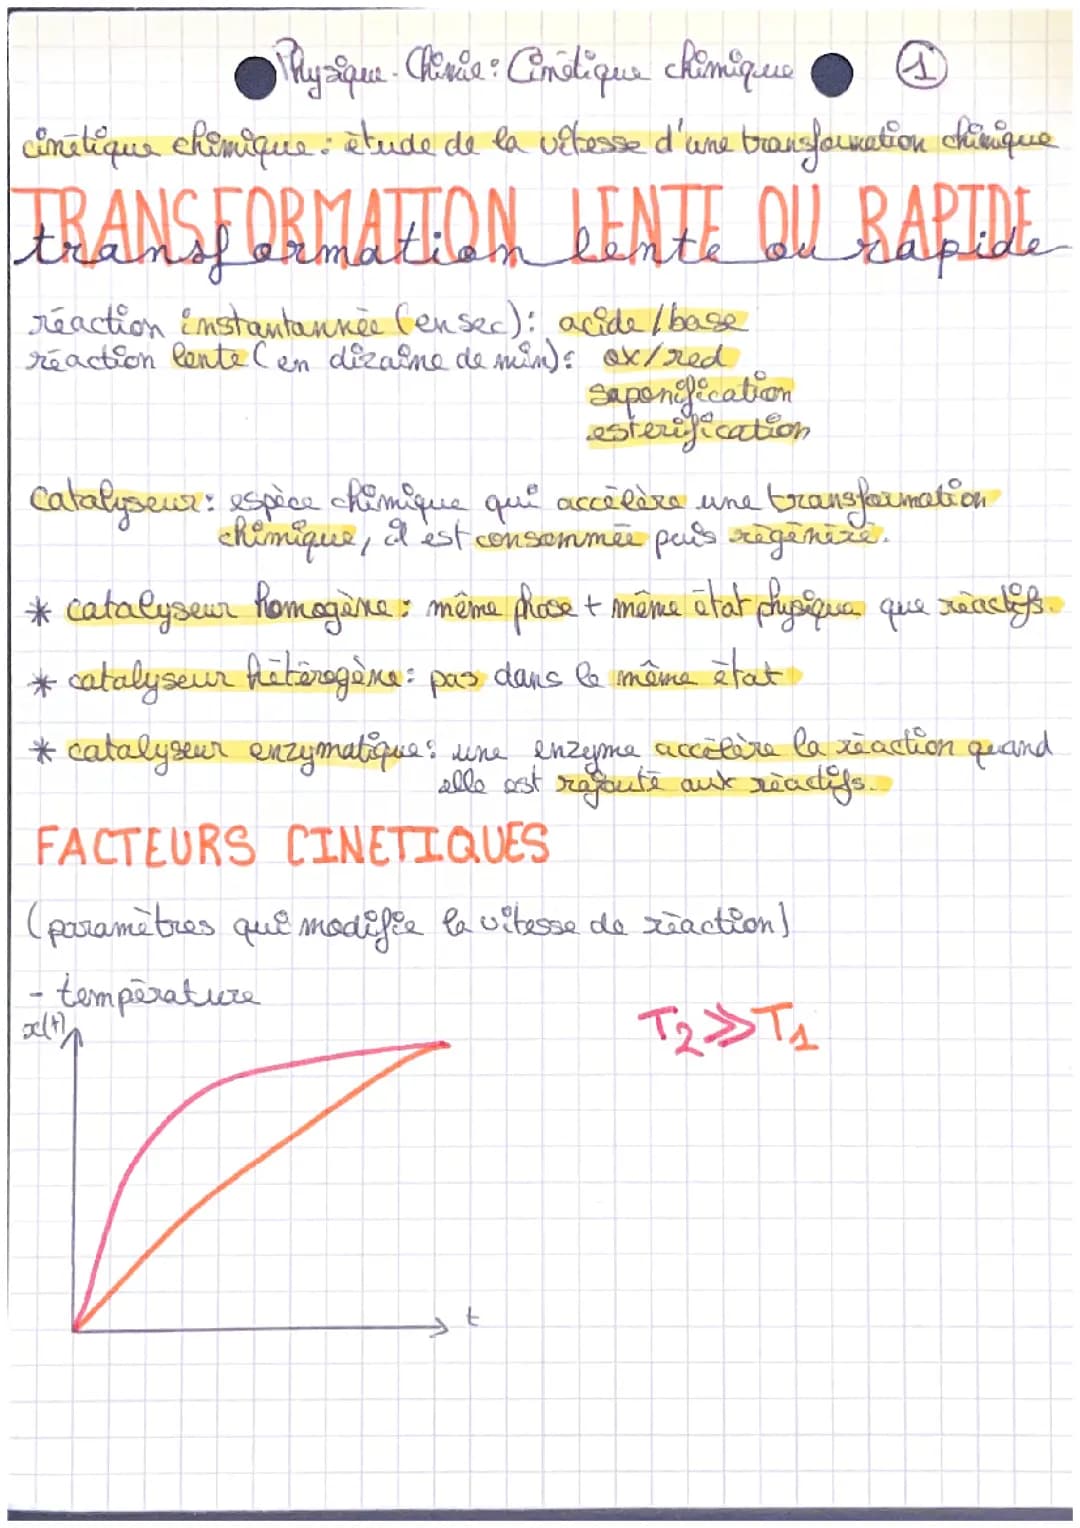 Physique-Chimie: Cinétique chimique
1
cinétique chimique: étude de la vitesse d'une transformation chimique
TRANSFORMATION LENTE OU RAPIDE
transformation lente ou rapide
réaction instantannée (en sec): acide/base
réaction lente (en dizaine de min): ox/red
saponification
esterification
Catalyseur: espèce chimique qui accélère une transformation
chimique, il est consommée puis régénéré.
* catalyseur homogène: même phase + même état physique que réactifs.
* catalyseur hétérogène: pas dans le même état
* catalyseur enzymatique: une enzyme accélère la réaction quand
elle est rajouté aux réactifs.
FACTEURS CINETIQUES
(paramètres qui modifie la vitesse de réaction)
- température
x(t)
T2 >> T1
t